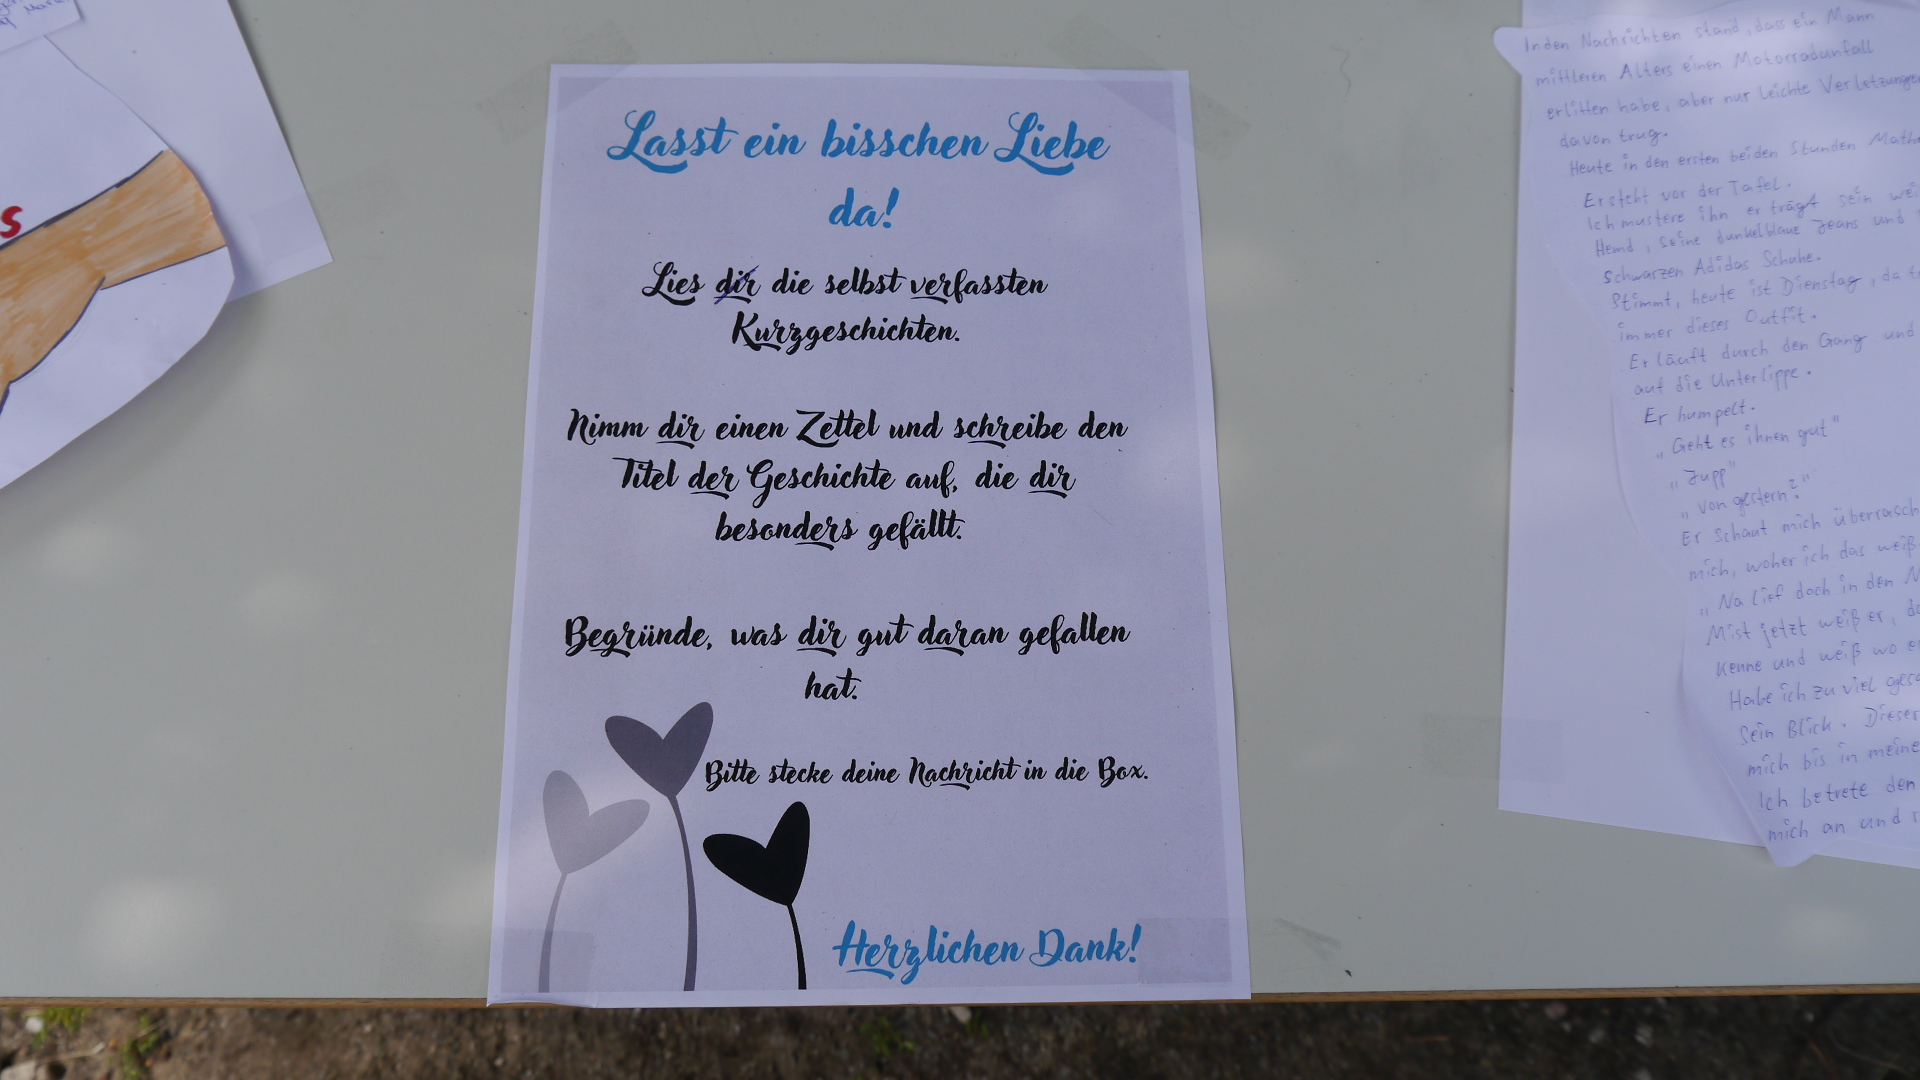 Lasst ein bisschen Liebe
da!
Lies dir die selbst verfassten
Kurzgeschichten.
Nimm dir einen Zettel und schreibe den
Titel der Geschichte auf, die dir
besonders gefällt.
Begründe, was dir gut daran gefallen
hat.
Bitte stecke deine Nachricht in die Box.
Herzlichen Dank!
s
In den Nachrichten stand, dass ein Mann
mittleren Alters einen Motorradunfall
erlitten habe, aber nur leichte Verletzungen
davon trug.
Heute in den ersten beiden Stunden Math
Er steht vor der Tafel.
Ich mustere ihn er trägt sein wei
Hemd, seine dunkelblaue Jeans und
schwarzen Adidas Schuhe.
Stimmt, heute ist Dienstag, da
immer dieses Outfit.
Er läuft durch den Gang und
auf die Unterlippe.
Er humpelt.
„Geht es ihnen gut"
„Jupp"
„von gestern?"
Er schaut mich überrasch
mich, woher ich das weiß
„Na lief doch in den N
Mist jetzt weiß er, da
kenne und weiß wo e
Habe ich zu viel gesa
Sein Blick. Dieser
mich bis in meine
Ich betrete den
mich an und